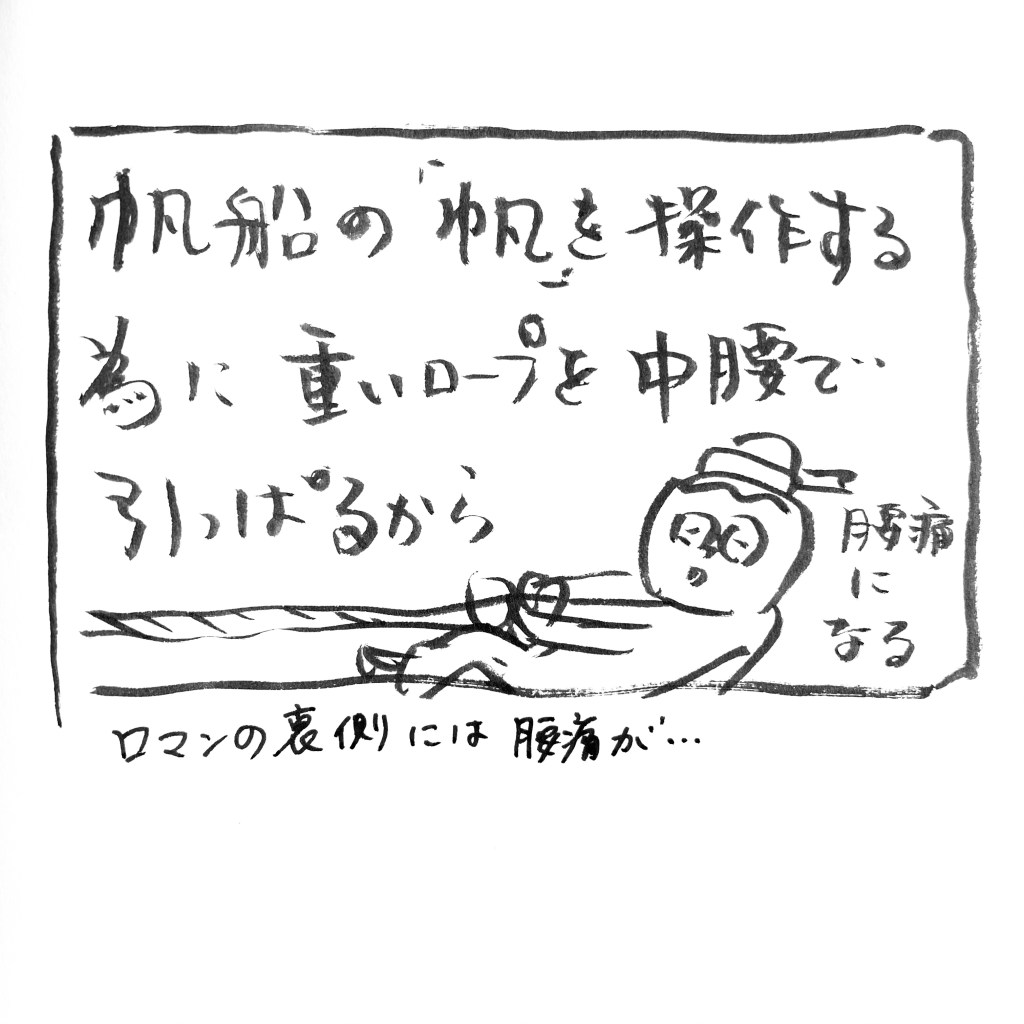 帆船の「帆」を操作する
為に重いロープを中腰で
引っぱるから
腰痛
に
なる
ロマンの裏側には腰痛が…